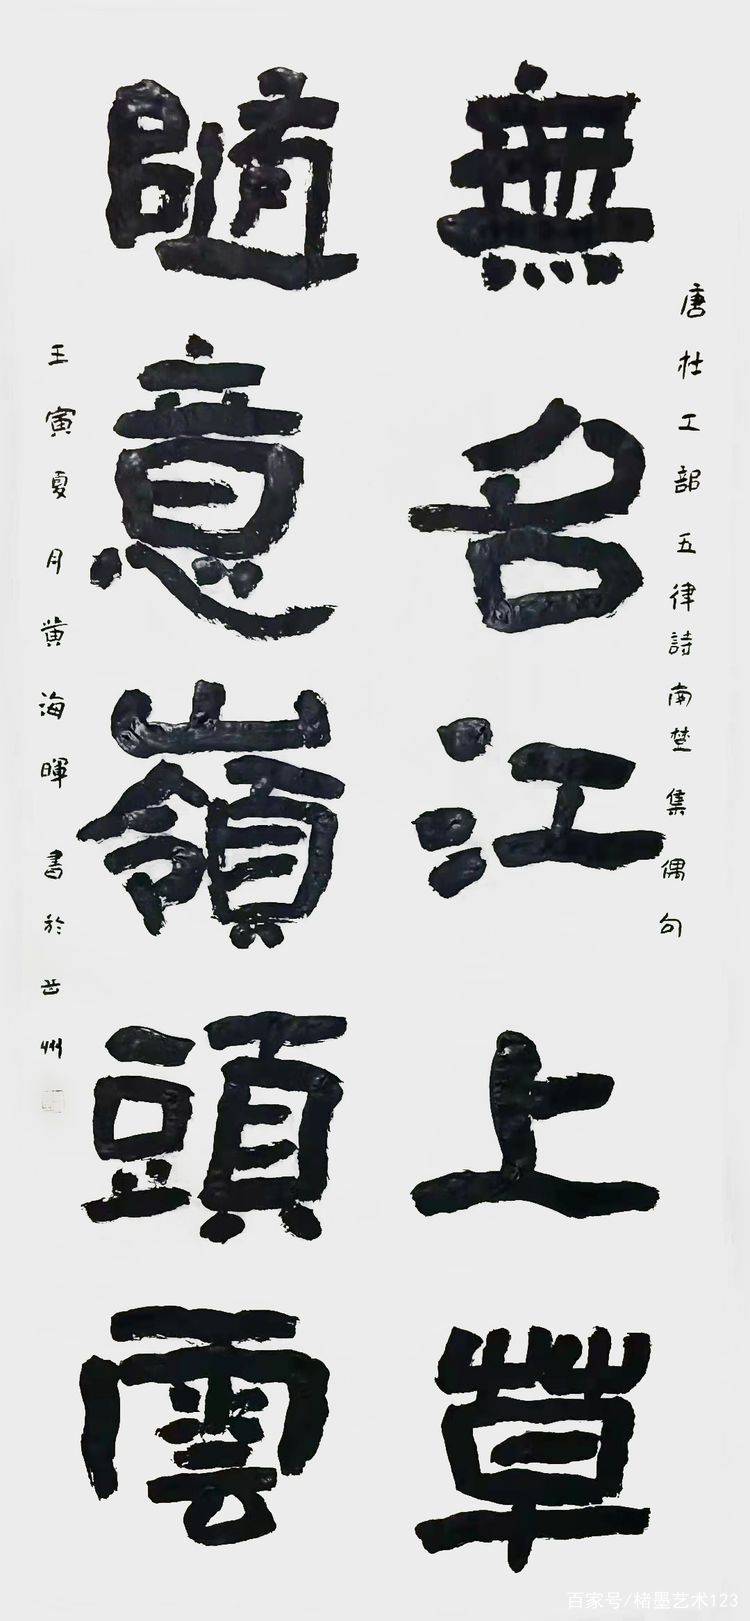 唐杜工部五律詩南楚集偶句
無名江上草
隨意嶺頭雲
王寅夏月黄海暉書於岳州
百家号/楮墨艺术123